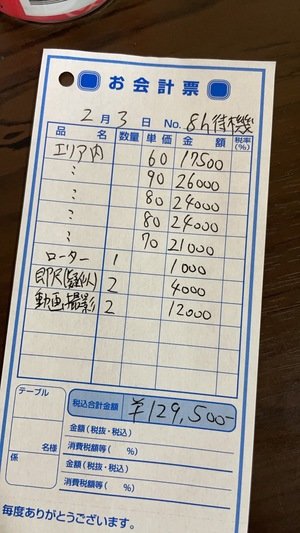 お会計票
2月3日 No. 8h待機
品名 数量 単価 金額 税率(%)
エリア内 60 17500
〃 90 26000
〃 80 24000
〃 80 24000
〃 70 21000
ローター 1 1000
即尺(疑似) 2 4000
動画撮影 2 12000
テーブル
名様
係
税込合計金額 ¥129,500-
金額(税抜・税込)
消費税額等( %)
金額(税抜・税込)
消費税額等( %)
毎度ありがとうございます。